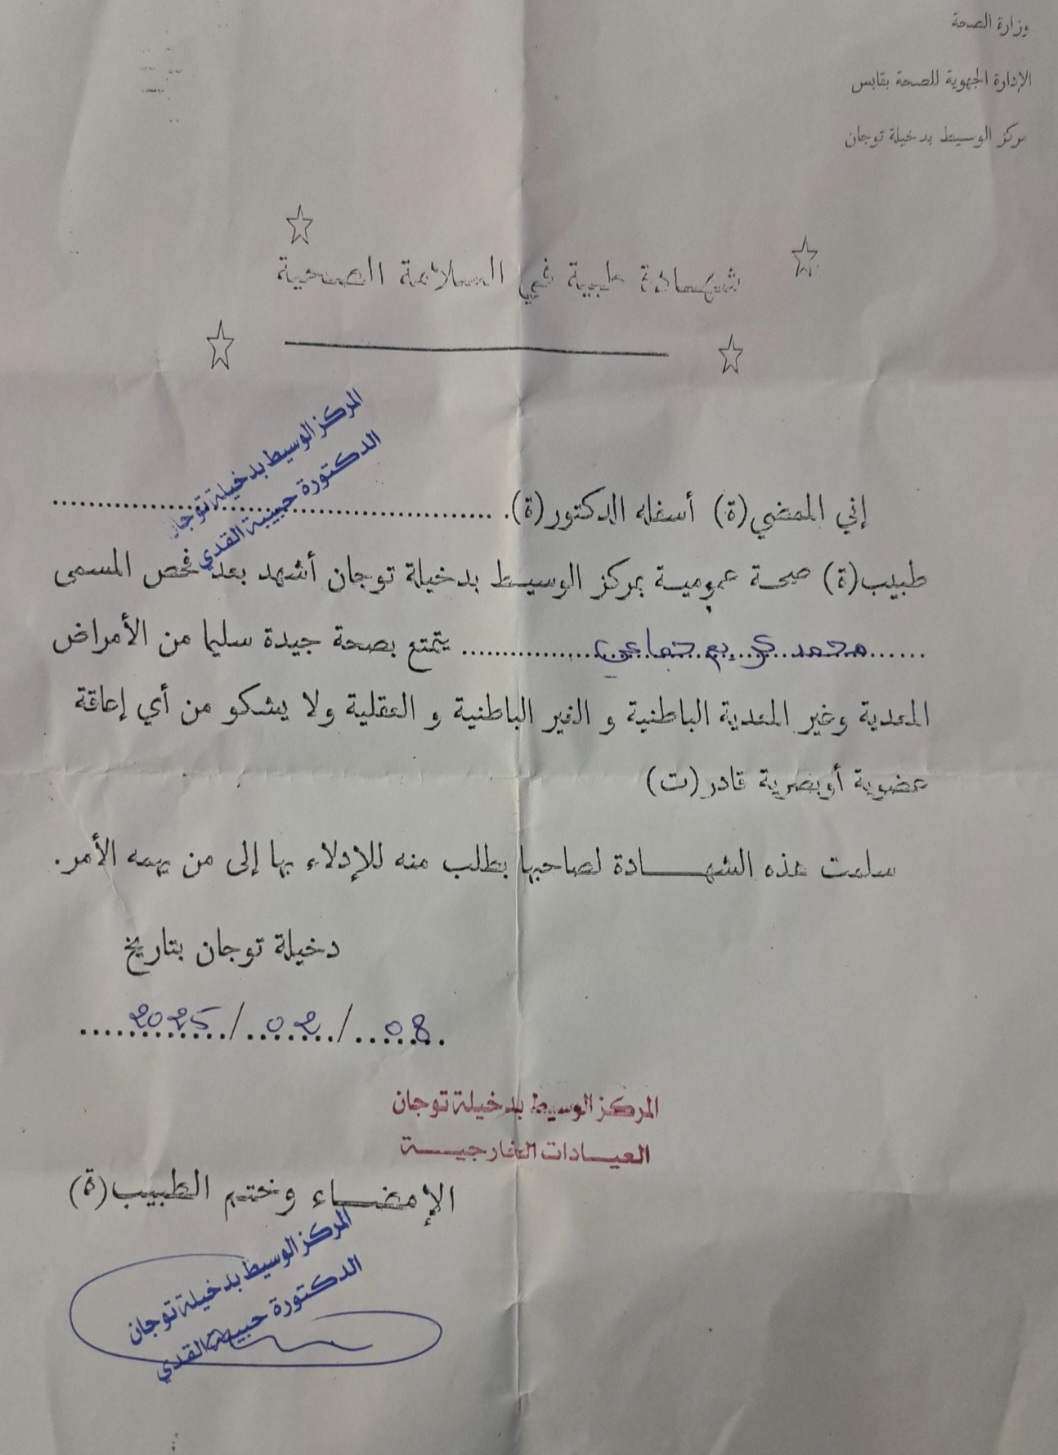 وزارة الصحة
الإدارة الجهوية للصحة بقابس
مركز الوسيط بدخيلة توجان
شهادة طبية في السلامة الصحية
المركز الوسيط بدخيلة توجان
الدكتورة حبيبة القدي
إني الممضي(ة) أسفله الدكتور(ة).
طبيب(ة) صحة عمومية بمركز الوسيط بدخيلة توجان أشهد بعد فحص المسمى
محمد كريم يتمتع بصحة جيدة سليما من الأمراض
المعدية وغير المعدية الباطنية و الغير الباطنية و العقلية ولا يشكو من أي إعاقة
عضوية أوبصرية قادر(ت)
سلمت هذه الشهادة لصاحبها بطلب منه للإدلاء بها إلى من يهمه الأمر.
دخيلة توجان بتاريخ
08/02/2025
المركز الوسيط بدخيلة توجان
العيادات الخارجية
الإمضاء وختم الطبيب(ة)
المركز الوسيط بدخيلة توجان
الدكتورة حبيبة القدي